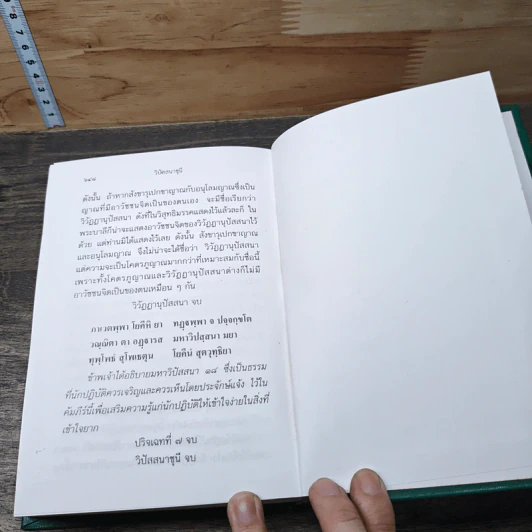 ๖๔๒ วิปัสสนาชุนี
ดังนั้น ถ้าหากสังขารุเปกขาญาณกับอนุโลมญาณซึ่งเป็น
ญาณที่มีอาวัชชนจิตเป็นของตนเอง จะมีชื่อเรียกว่า
วิวัฏฏานุปัสสนา ดังที่ในวิสุทธิมรรคแสดงไว้แล้วละก็ ใน
พระบาลีก็น่าจะแสดงอาวัชชนจิตของวิวัฏฏานุปัสสนาไว้
ด้วย แต่ท่านมิได้แสดงไว้เลย ดังนั้น สังขารุเปกขาญาณ
และอนุโลมญาณ จึงไม่น่าจะได้ชื่อว่า วิวัฏฏานุปัสสนา
แต่ความจะเป็นโคตรภูญาณมากกว่าที่เหมาะสมกับชื่อนี้
เพราะทั้งโคตรภูญาณและวิวัฏฏานุปัสสนาต่างก็ไม่มี
อาวัชชนจิตเป็นของตนเหมือน ๆ กัน
วิวัฏฏานุปัสสนา จบ
ภาเวตพฺพา โยคีหิ ยา ทฏฺฐพฺพา จ ปจฺจกฺขโต
วณฺณิตา ตา อฏฺฐารส มหาวิปสฺสนา มยา
ทุพฺโพธํ สุโพเธตุน โยคีนํ สุตวุทฺธิยา
ข้าพเจ้าได้อธิบายมหาวิปัสสนา ๑๘ ซึ่งเป็นธรรม
ที่นักปฏิบัติควรเจริญและควรเห็นโดยประจักษ์แจ้ง ไว้ใน
คัมภีร์นี้เพื่อเสริมความรู้แก่นักปฏิบัติให้เข้าใจง่ายในสิ่งที่
เข้าใจยาก
ปริจเฉทที่ ๗ จบ
วิปัสสนาชุนี จบ
8
7
6
5
4
3
2
1